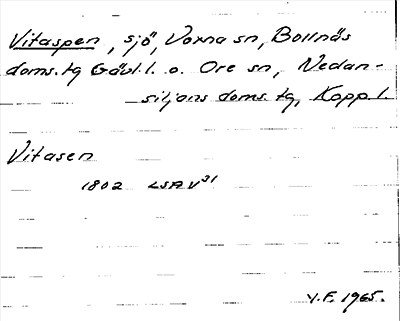 Vitaspen, sjö, Voxna sn, Bollnäs
doms. tg Gävl. l. o. Ore sn, Nedan-
siljans doms. tg, Kopp. l.
Vitasen
1802 LSA V31
V.E. 1965.